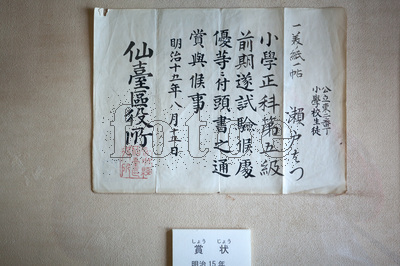 公立東二番丁
小學校生徒
一美紙一帖
瀬戸
小學正科第五級
前期遂試驗候處
優等ニ付頭書之通
賞與候事
明治十五年八月十五日
仙臺區役所
しょう じょう
賞 状
明治15年
fotoe